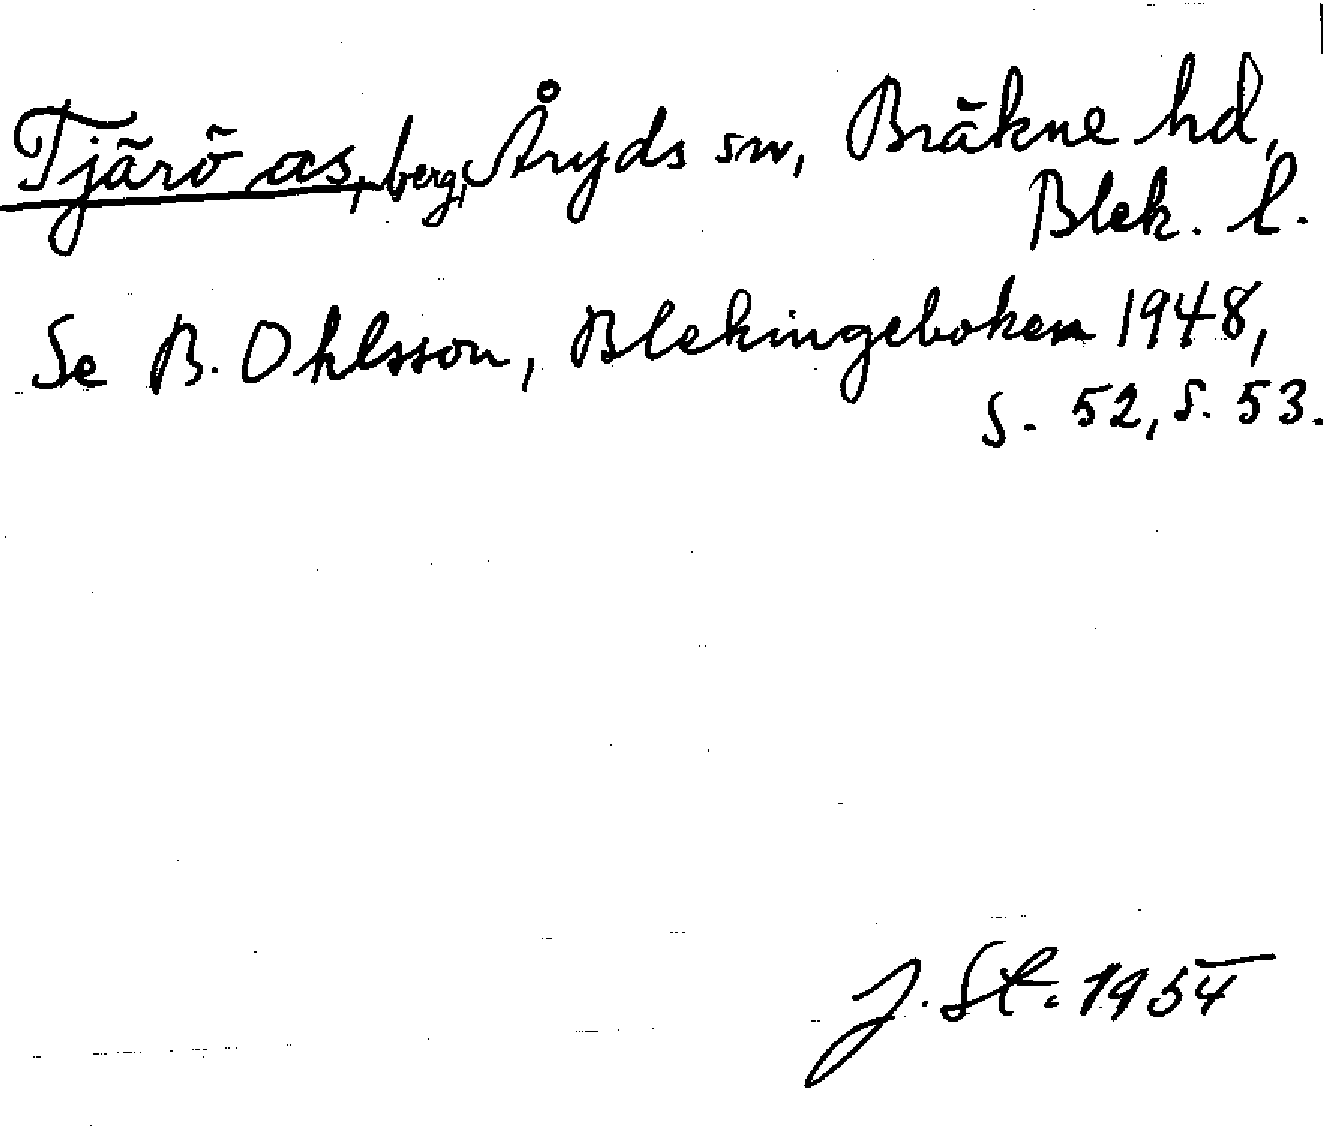 Tjärö as, berg, Åryds sn, Bräkne hd,
Blek. l.
Se B. Ohlsson, Blekingeboken 1948,
s. 52, s. 53.
J. St. 1954